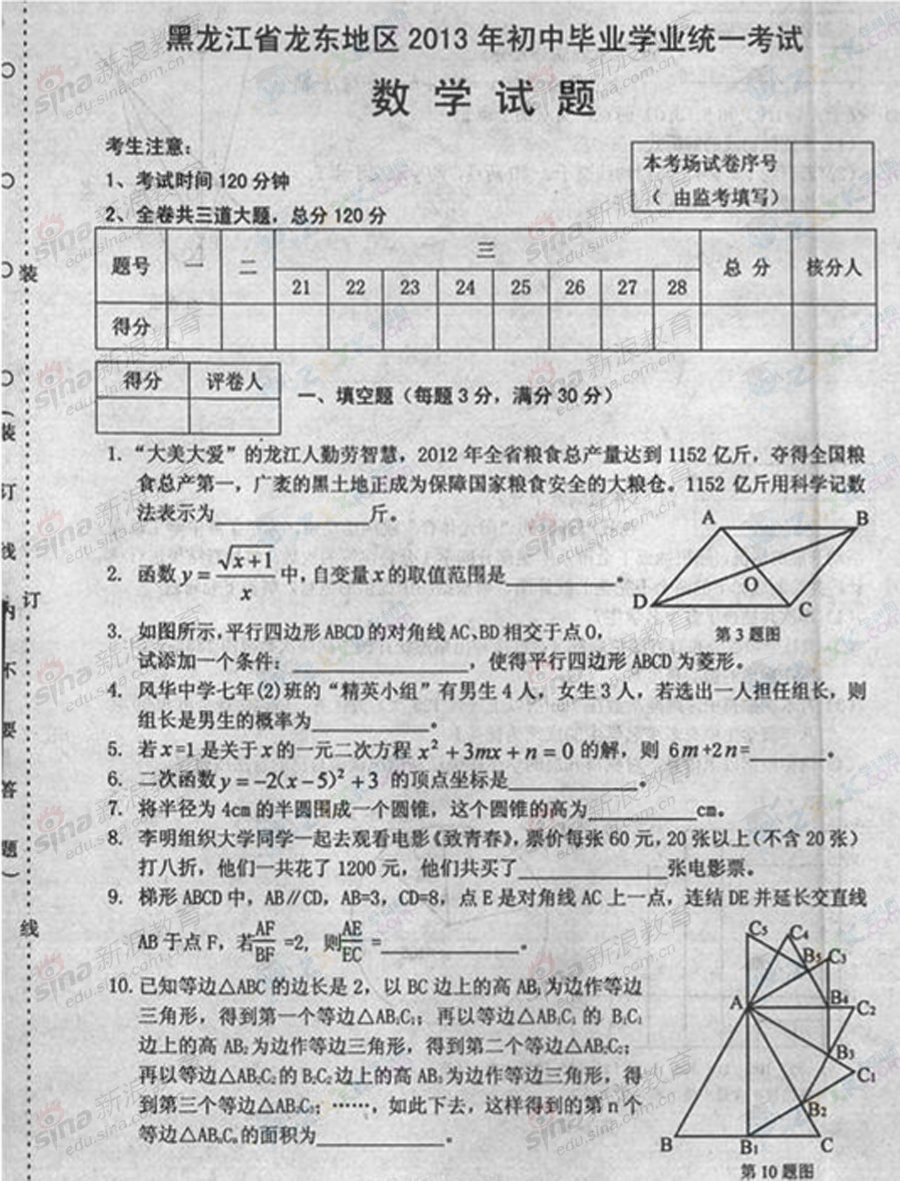 黑龙江省龙东地区 2013 年初中毕业学业统一考试
数 学 试 题
考生注意：
1、考试时间 120 分钟
2、全卷共三道大题，总分 120 分
本考场试卷序号
（ 由监考填写）
题号 一 二 三 总 分 核分人
21 22 23 24 25 26 27 28
得分
得分 评卷人
一、填空题（每题 3 分，满分 30 分）
1. “大美大爱”的龙江人勤劳智慧，2012 年全省粮食总产量达到 1152 亿斤，夺得全国粮
食总产第一，广袤的黑土地正成为保障国家粮食安全的大粮仓。1152 亿斤用科学记数
法表示为____________斤。
2. 函数 y = √(x+1) / x 中，自变量 x 的取值范围是__________。
A B O D C
第 3 题图
3. 如图所示，平行四边形 ABCD 的对角线 AC、BD 相交于点 O，
试添加一个条件：______________，使得平行四边形 ABCD 为菱形。
4. 风华中学七年(2)班的“精英小组”有男生 4 人，女生 3 人，若选出一人担任组长，则
组长是男生的概率为__________。
5. 若 x=1 是关于 x 的一元二次方程 x² + 3mx + n = 0 的解，则 6m+2n=_______。
6. 二次函数 y = −2(x − 5)² + 3 的顶点坐标是__________。
7. 将半径为 4cm 的半圆围成一个圆锥，这个圆锥的高为_________cm。
8. 李明组织大学同学一起去观看电影《致青春》，票价每张 60 元，20 张以上（不含 20 张）
打八折，他们一共花了 1200 元，他们共买了____________张电影票。
9. 梯形 ABCD 中，AB∥CD，AB=3，CD=8，点 E 是对角线 AC 上一点，连结 DE 并延长交直线
AB 于点 F，若 AF/BF =2，则 AE/EC =____________。
10. 已知等边△ABC 的边长是 2，以 BC 边上的高 AB₁ 为边作等边
三角形，得到第一个等边△AB₁C₁；再以等边△AB₁C₁ 的 B₁C₁
边上的高 AB₂ 为边作等边三角形，得到第二个等边△AB₂C₂；
再以等边△AB₂C₂ 的 B₂C₂ 边上的高 AB₃ 为边作等边三角形，得
到第三个等边△AB₃C₃；……，如此下去，这样得到的第 n 个
等边△ABₙCₙ 的面积为__________。
C₅ C₄ B₅ C₃ A B₄ C₂ B₃ C₁ B₂ B B₁ C
第 10 题图
装
订
线
（装
订
线
内
不
要
答
题）
sina 新浪教育
edu.sina.com.cn